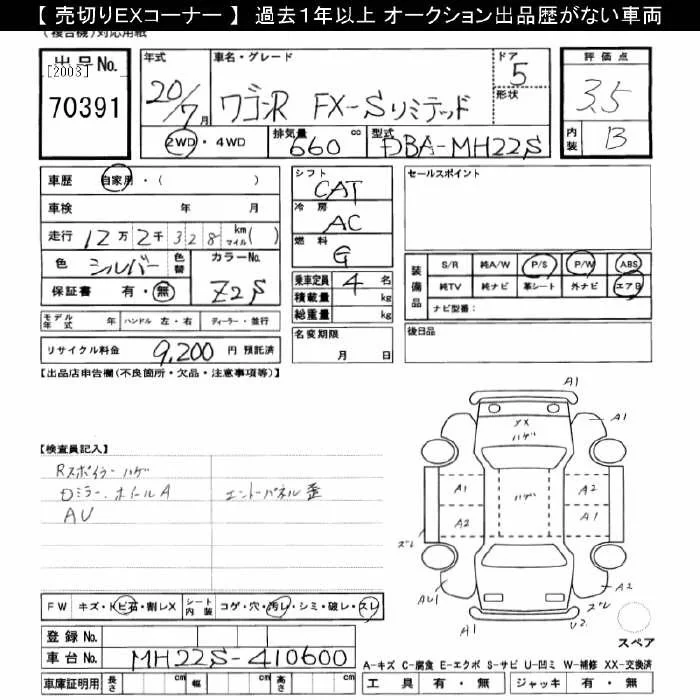 【 売切りEXコーナー 】 過去1年以上 オークション出品歴がない車両
(複合機)対応用紙
出品No. [2003]
70391
年式 20/7月
車名・グレード ワゴンR FX-Sリミテッド
ドア 5
形状
評価点 3.5
内装 B
2WD・4WD
排気量 660 cc
型式 DBA-MH22S
車歴 自家用・( )
車検 年 月
走行 12万2千328 km マイル( )
色 シルバー 色替
カラーNo. Z2S
保証書 有・無
シフト CAT
冷房 AC
燃料 G
乗車定員 4 名
積載量 kg
総重量 kg
名変期限 月 日
セールスポイント
装備品 S/R 純A/W P/S P/W ABS
純TV 純ナビ 革シート 外ナビ エアB
ナビ型番:
後日品
モデル年式 年 ハンドル 左・右 ディーラー・並行
リサイクル料金 9,200 円 預託済
【出品店申告欄(不良箇所・欠品・注意事項等)】
【検査員記入】
Rスポイラーハゲ
Dミラー、ホイールA エントーパネル歪
AU
A1
A1
YX
ハゲ
A1 ハゲ A2
A2 A1
ズレ
AU1 A2
ズレ
A1 U2
スペア
FW キズ・トビ石・割レX シート内装 コゲ・穴・汚レ・シミ・破レ・スレ
登録No.
車台No. MH22S-410600
車庫証明用 長さ cm 幅 cm 高さ cm
A-キズ C-腐食 E-エクボ S-サビ U-凹ミ W-補修 XX-交換済
工具 有・無 ジャッキ 有・無